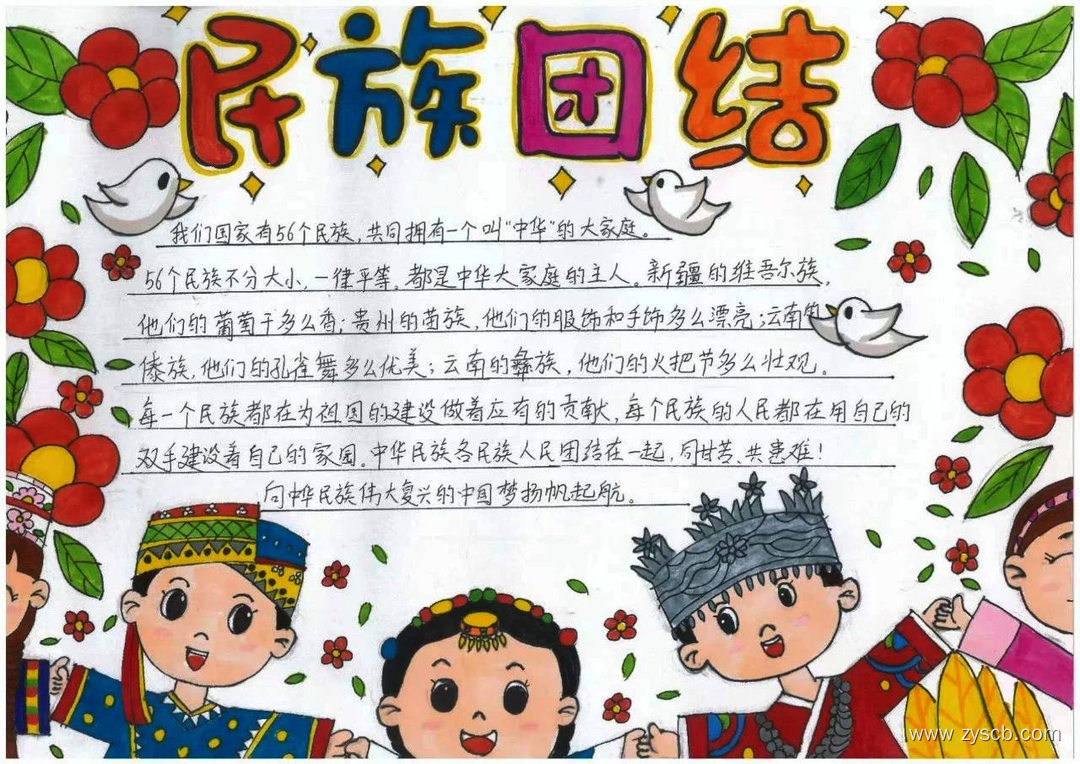 民族团结
我们国家有56个民族，共同拥有一个叫“中华”的大家庭。
56个民族不分大小，一律平等，都是中华大家庭的主人。新疆的维吾尔族，
他们的葡萄干多么香；贵州的苗族，他们的服饰和手饰多么漂亮；云南的
傣族，他们的孔雀舞多么优美；云南的彝族，他们的火把节多么壮观。
每一个民族都在为祖国的建设做着应有的贡献，每个民族的人民都在用自己的
双手建设着自己的家园。中华民族各民族人民团结在一起，同甘苦、共患难！
向中华民族伟大复兴的中国梦扬帆起航。
www.zyscb.com